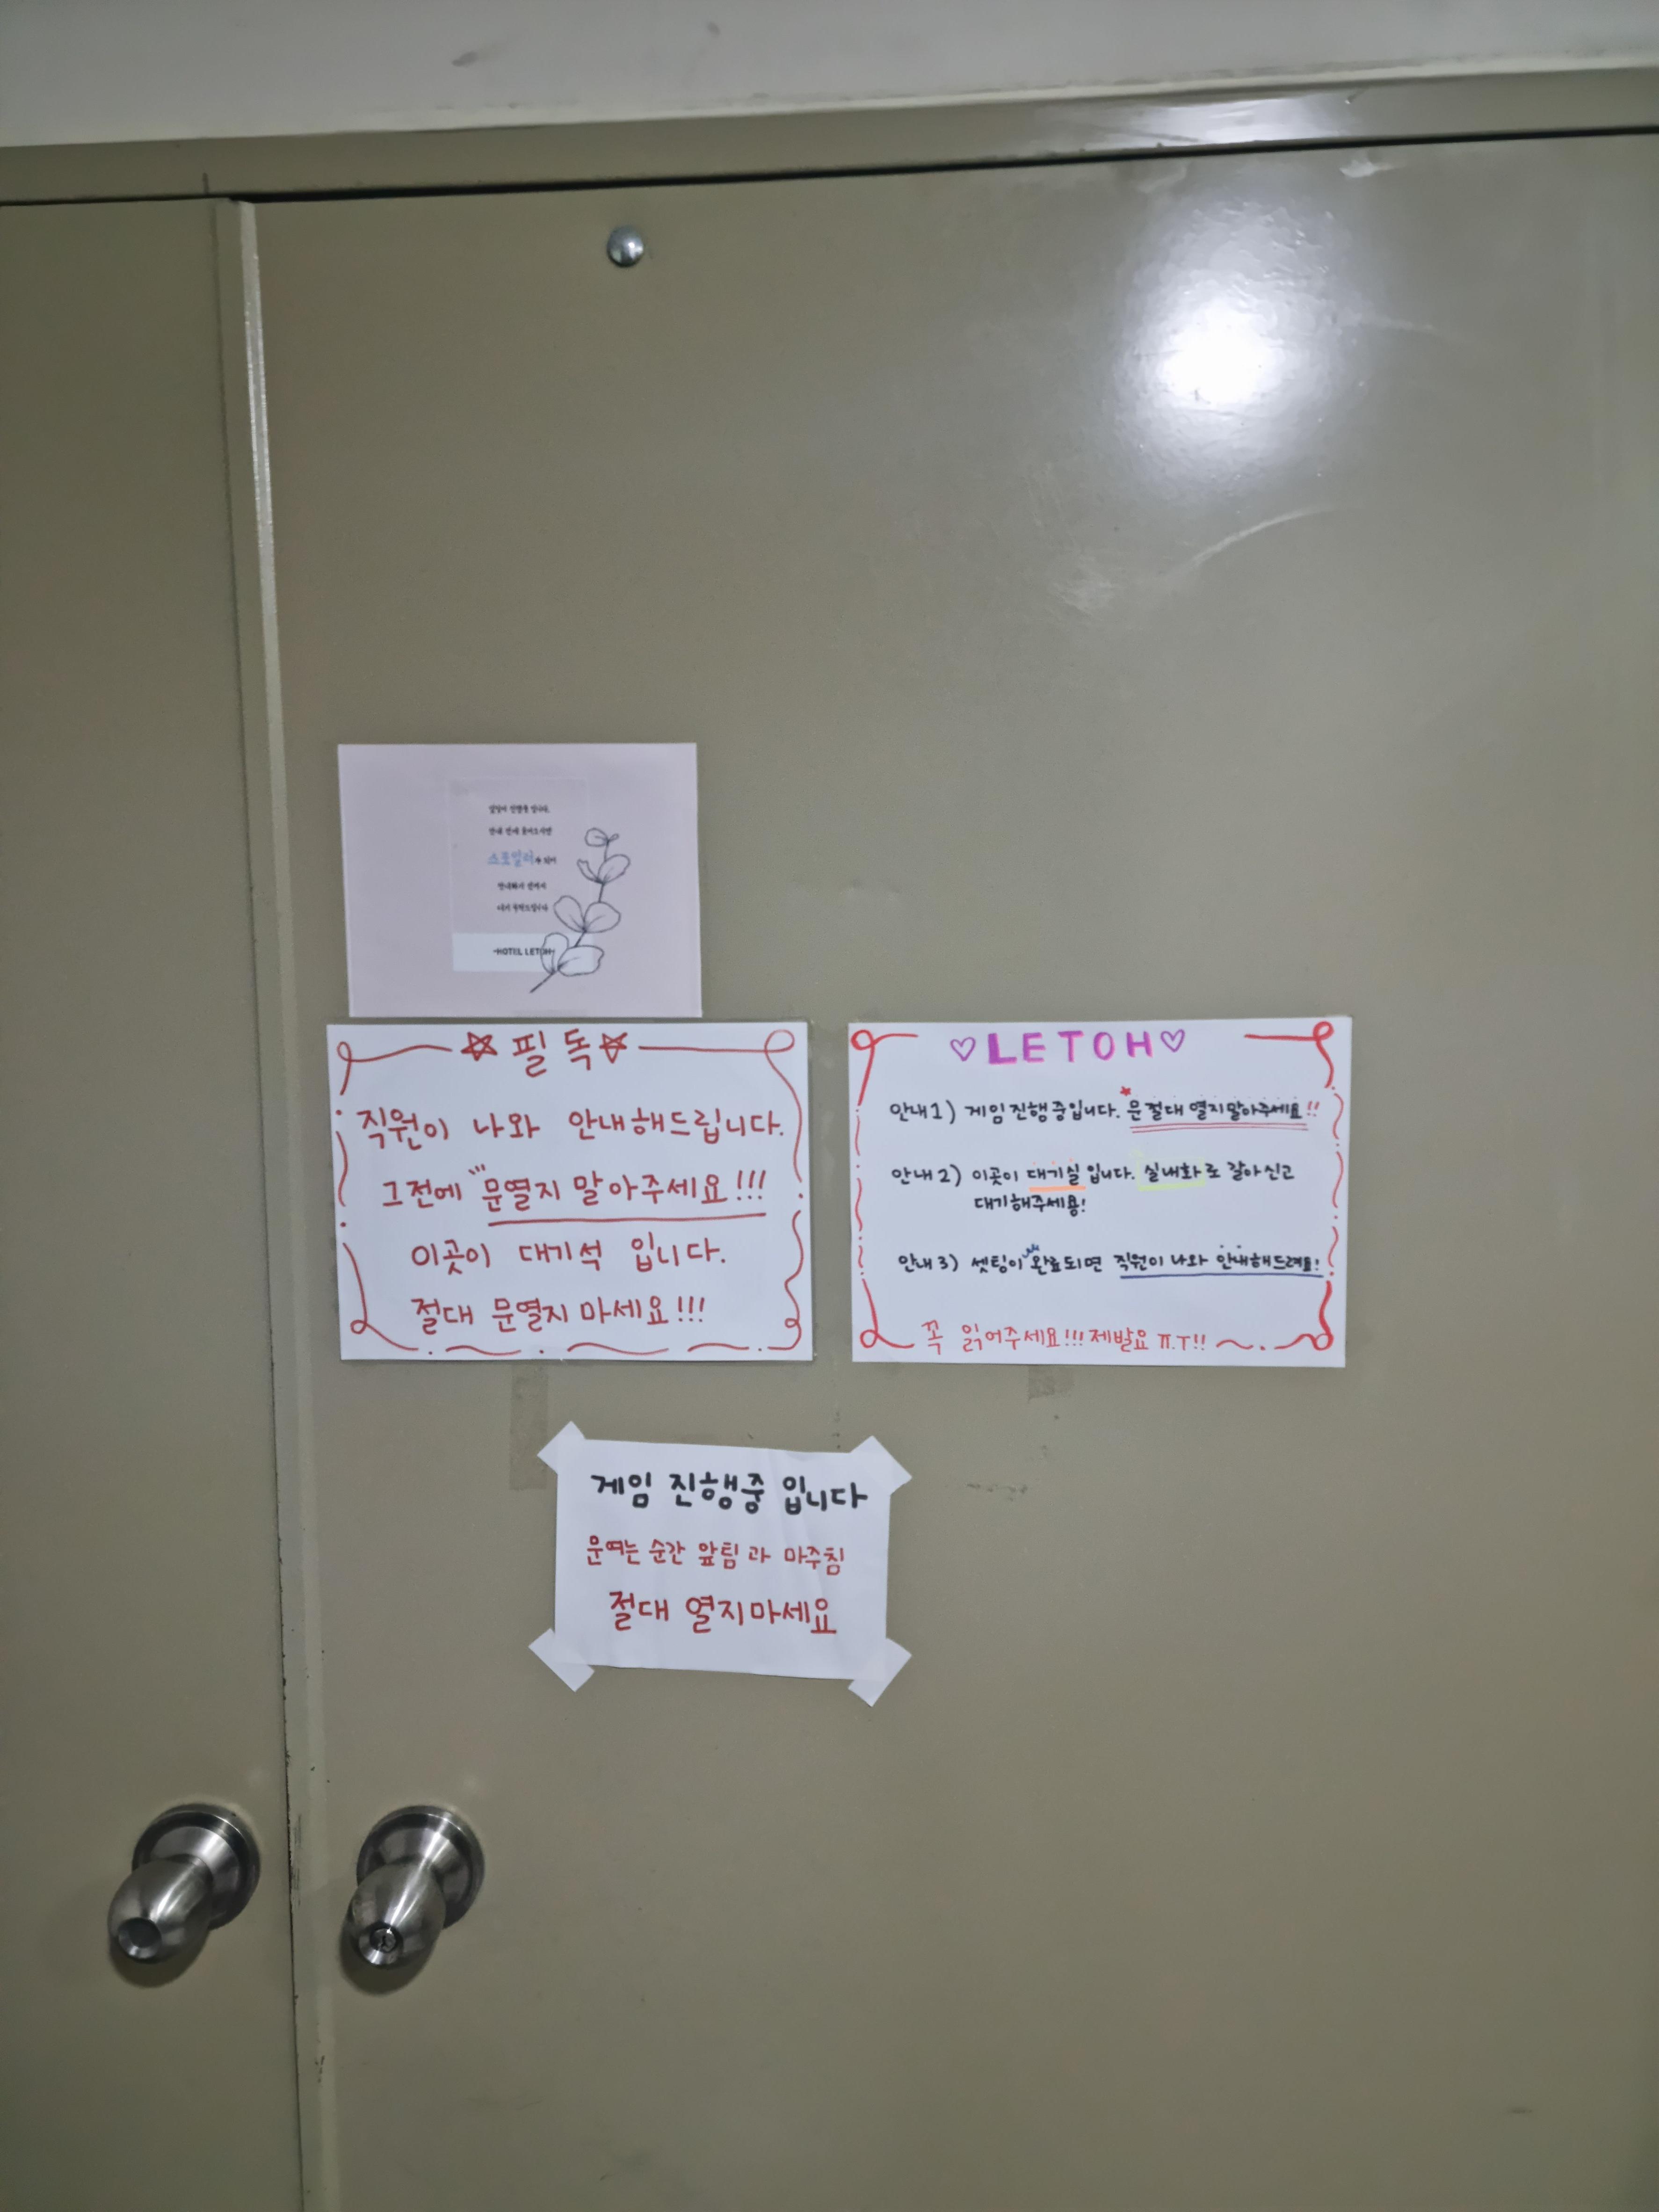 안내 없이 들어오시면
스포일러가 되어
-HOTEL LETOH-
☆필독☆
직원이 나와 안내해드립니다.
그전에 문열지 말아주세요!!!
이곳이 대기석 입니다.
절대 문열지 마세요!!!
♡LETOH♡
안내1) 게임진행중입니다. 문절대 열지말아주세요!!
안내2) 이곳이 대기실입니다. 실내화로 갈아신고
대기해주세용!
안내3) 셋팅이 완료되면 직원이 나와 안내해드려요!
꼭 읽어주세요!!! 제발요 ㅠ.ㅜ!!
게임 진행중 입니다
문여는 순간 앞팀과 마주침
절대 열지마세요